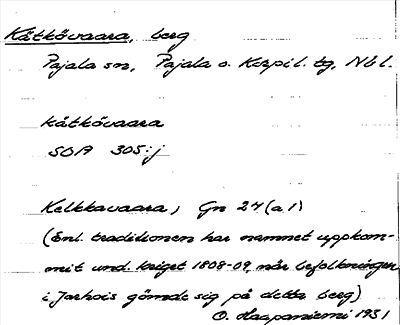 Kätkövaara, berg
Pajala sn, Pajala o. Korpil. tg, Nbl.
kätkövaara
SOA 305:j
Kelkkavaara, Gn 24 (a1)
(Enl. traditionen har namnet uppkom-
mit und. kriget 1808-09, när befolkningen
i Jarhois gömde sig på detta berg)
O. Haapaniemi 1931